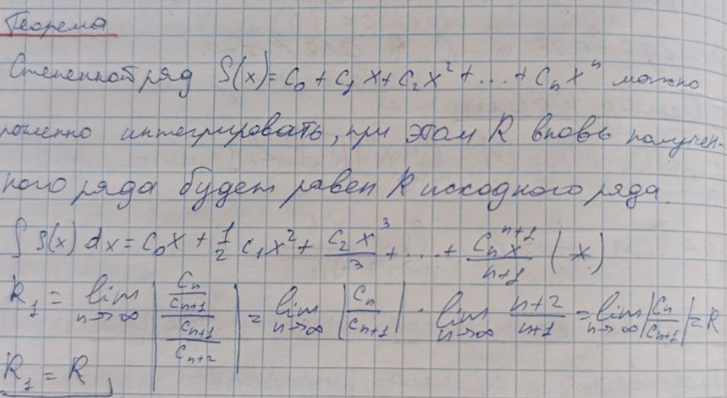 Теорема
Степенной ряд S(x) = C₀ + C₁x + C₂x² + ... + Cₙxⁿ можно
почленно интегрировать, при этом R вновь получен-
ного ряда будет равен R исходного ряда.
∫ S(x) dx = C₀x + 1/2 C₁x² + C₂x³/3 + ... + Cₙxⁿ⁺¹/n+1 (x)
R₁ = lim n→∞ | (Cₙ/Cₙ₊₁)/(Cₙ₊₁/Cₙ₊₂) | = lim n→∞ |Cₙ/Cₙ₊₁| · lim n→∞ n+2/n+1 = lim n→∞ |Cₙ/Cₙ₊₁| = R
R₁ = R,